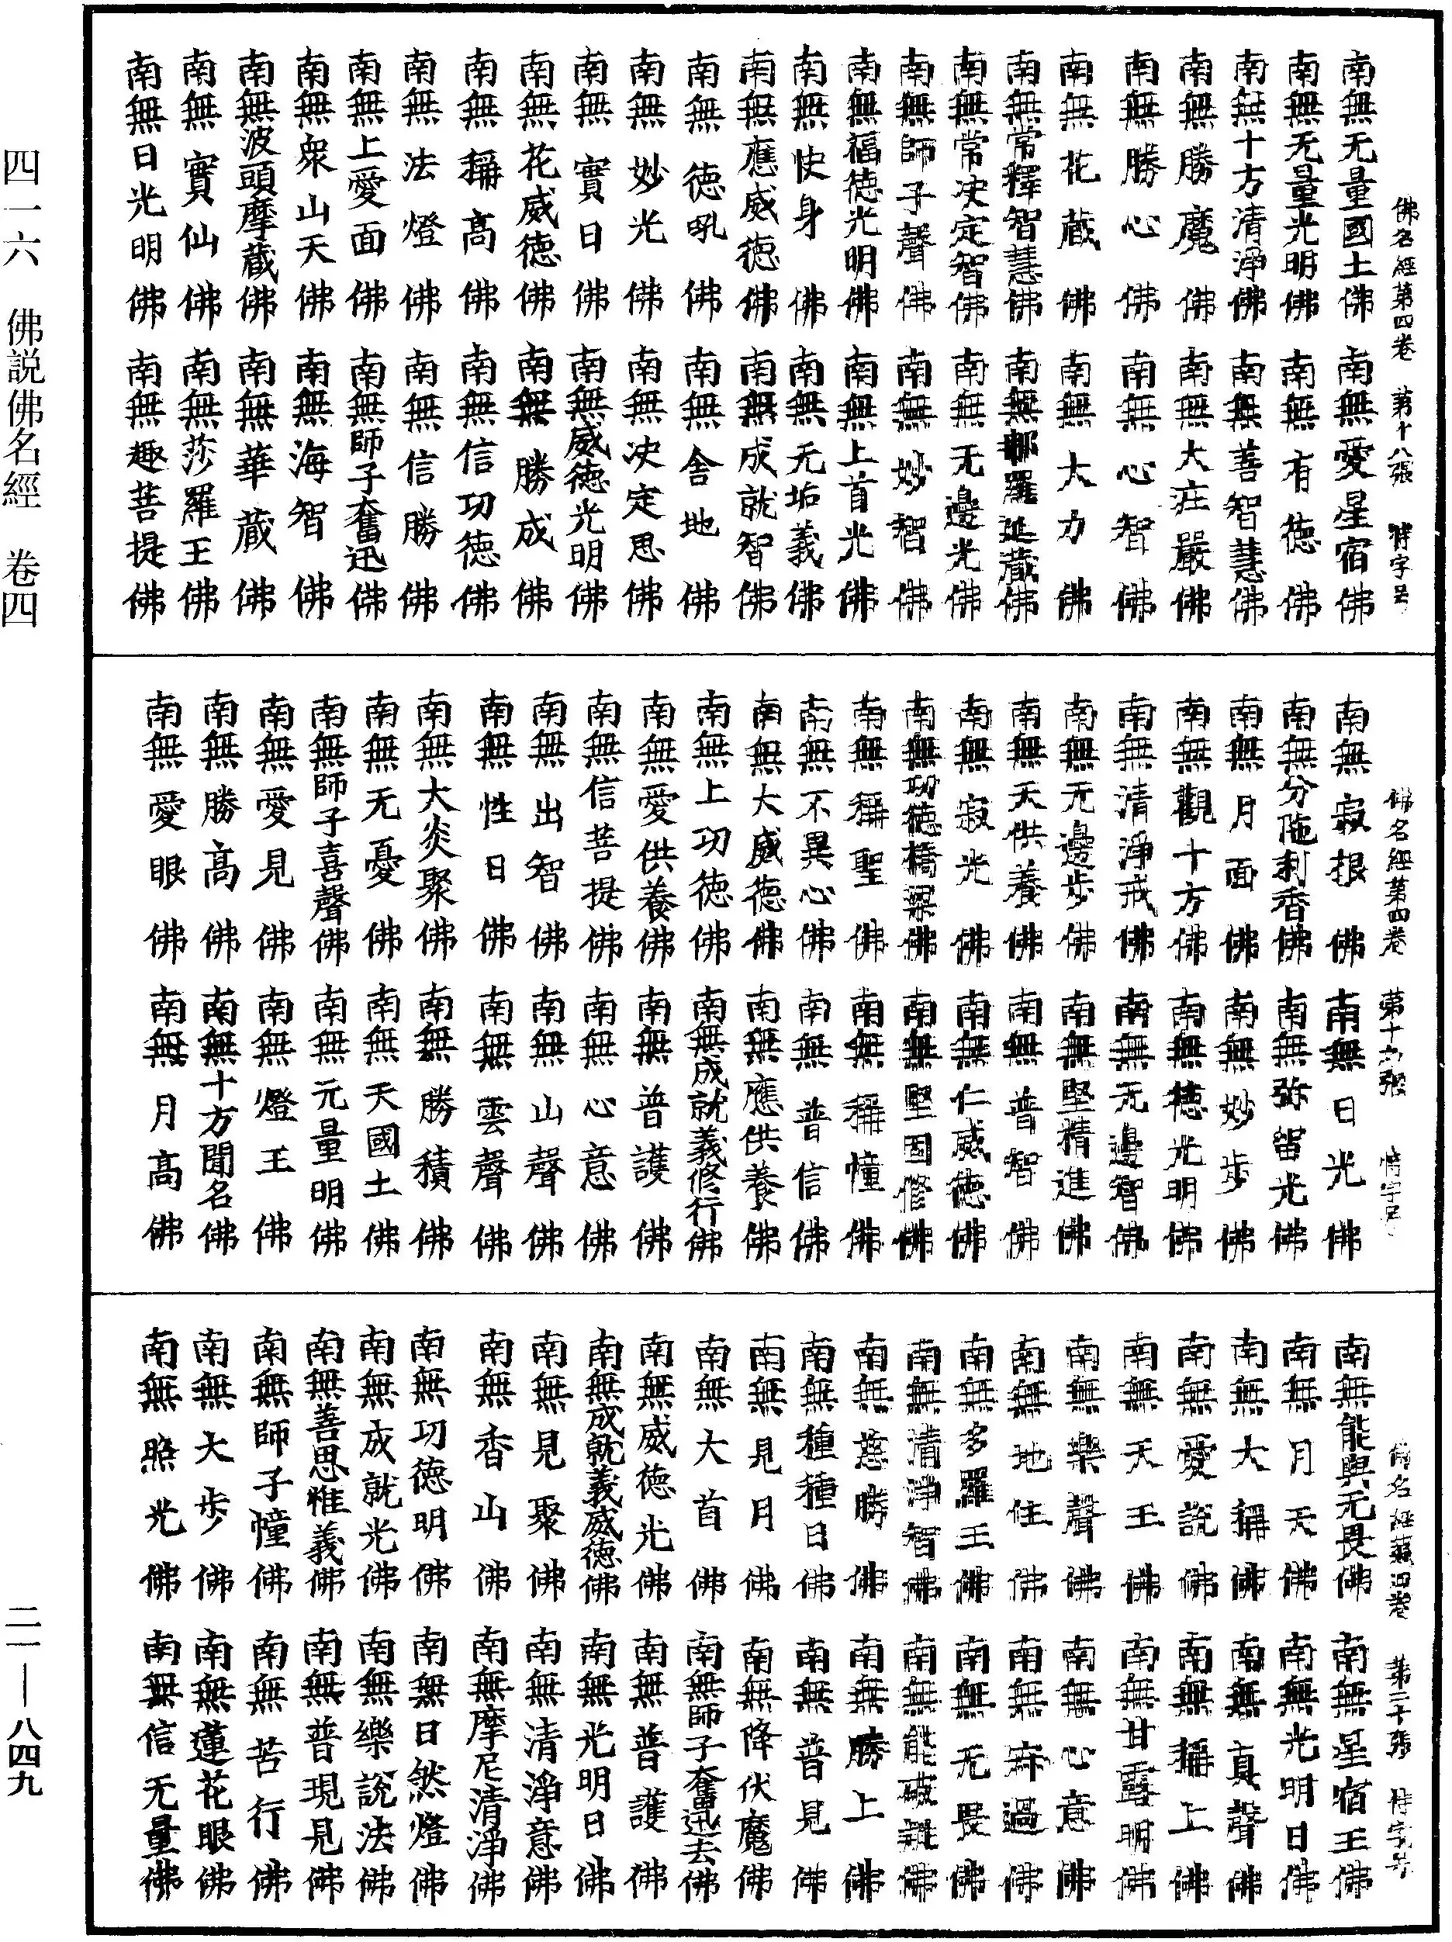 佛名經第四卷 第十八張 特字号
南無无量國土佛 南無愛星宿佛
南無无量光明佛 南無有德佛
南無十方清淨佛 南無善智慧佛
南無勝魔佛 南無大庄嚴佛
南無勝心佛 南無心智佛
南無花藏佛 南無大力佛
南無常釋智慧佛 南無那羅延藏佛
南無常决定智佛 南無无邊光佛
南無師子聲佛 南無妙智佛
南無福德光明佛 南無上首光佛
南無快身佛 南無无垢義佛
南無應威德佛 南無成就智佛
南無德吼佛 南無舍地佛
南無妙光佛 南無决定思佛
南無實日佛 南無威德光明佛
南無花威德佛 南無勝成佛
南無稱高佛 南無信功德佛
南無法燈佛 南無信勝佛
南無上愛面佛 南無師子奮迅佛
南無衆山天佛 南無海智佛
南無波頭摩藏佛 南無華藏佛
南無實仙佛 南無莎羅王佛
南無日光明佛 南無趣菩提佛
佛名經第四卷 第十九張 特字号
南無寂根佛 南無日光佛
南無分陁利香佛 南無弥留光佛
南無月面佛 南無妙步佛
南無觀十方佛 南無德光明佛
南無清淨戒佛 南無无邊智佛
南無无邊步佛 南無堅精進佛
南無天供養佛 南無普智佛
南無寂光佛 南無仁威德佛
南無功德橋梁佛 南無堅固修佛
南無稱聖佛 南無稱幢佛
南無不異心佛 南無普信佛
南無大威德佛 南無應供養佛
南無上功德佛 南無成就義修行佛
南無愛供養佛 南無普護佛
南無信菩提佛 南無心意佛
南無出智佛 南無山聲佛
南無性日佛 南無雲聲佛
南無大炎聚佛 南無勝積佛
南無无憂佛 南無天國土佛
南無師子喜聲佛 南無元量明佛
南無愛見佛 南無燈王佛
南無勝高佛 南無十方聞名佛
南無愛眼佛 南無月高佛
佛名經第四卷 第二十張 特字号
南無能與无畏佛 南無星宿王佛
南無月天佛 南無光明日佛
南無大稱佛 南無真聲佛
南無愛說佛 南無稱上佛
南無天王佛 南無甘露明佛
南無樂聲佛 南無心意佛
南無地住佛 南無過佛
南無多羅王佛 南無无畏佛
南無清淨智佛 南無能破佛
南無慈勝佛 南無勝上佛
南無種種日佛 南無普見佛
南無見月佛 南無降伏魔佛
南無大首佛 南無師子奮迅去佛
南無威德光佛 南無普護佛
南無成就義威德佛 南無光明日佛
南無見聚佛 南無清淨意佛
南無香山佛 南無摩尼清淨佛
南無功德明佛 南無日然燈佛
南無成就光佛 南無樂說法佛
南無善思惟義佛 南無普現見佛
南無師子幢佛 南無苦行佛
南無大步佛 南無蓮花眼佛
南無照光佛 南無信无量佛
四一六 佛說佛名經 卷四
二一—八四九